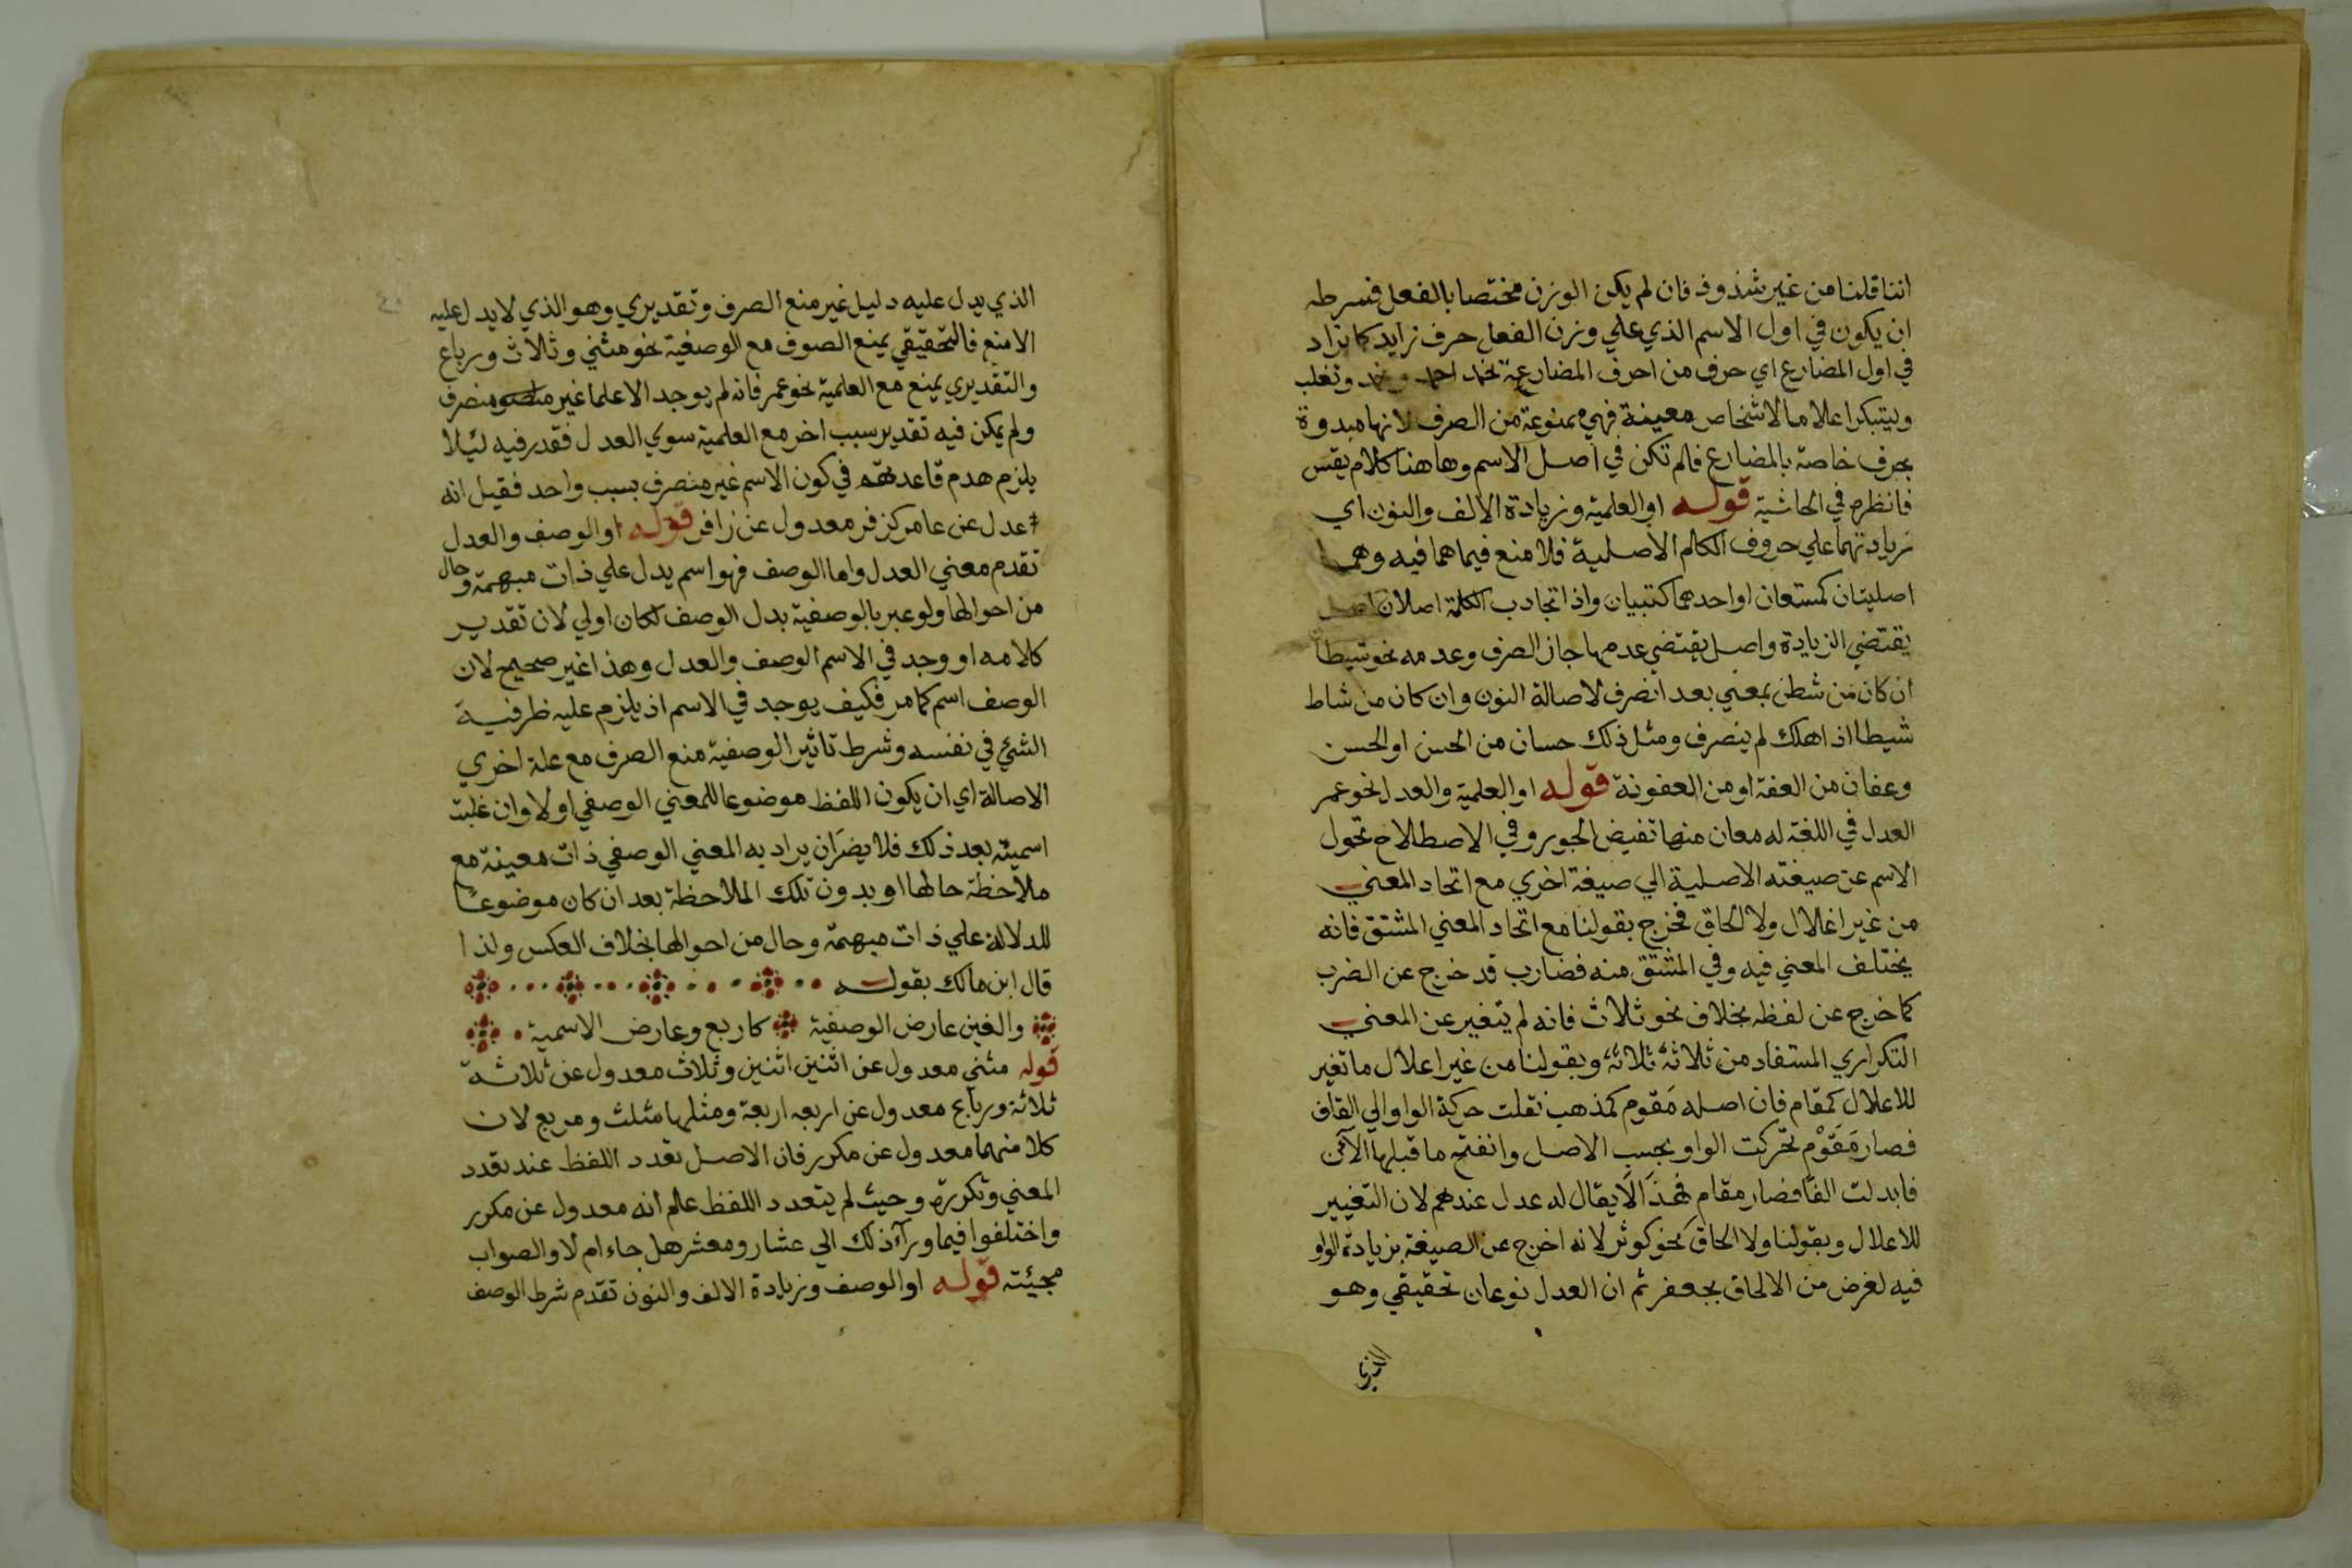 اننا قلنا من غير شذوذ فان لم يكن الوزن مختصا بالفعل فشرطه
ان يكون في اول الاسم الذي علي وزن الفعل حرف زايد كما يزاد
في اول المضارع اي حرف من احرف المضارعة نحو احمد وتغلب
ويتبكر اعلاما لاشخاص معينة فهي ممنوعة من الصرف لانها مبدوة
بحرف خاصة بالمضارع فالم تكن في اصل الاسم وهاهنا كلام نفيس
فانظره في الحاشية قوله او العلمية وزيادة الالف والنون اي
زيادتهما علي حروف الكالم الاصلية فلا منع فيما هما فيه وهما
اصليتان كمستعان او احدهما كتبيان واذا تجاذب الكلمة اصلان اصل
يقتضي الزيادة واصل يقتضي عدمها جاز الصرف وعدمه نحو شيطا
ان كان من شطن بمعني بعد انصرف لاصالة النون وان كان من شاط
شيطا اذا هلك لم ينصرف ومثل ذلك حسان من الحسن او الحسن
وعفان من العفة او من العفونة قوله او العلمية والعدل نحو عمر
العدل في اللغة له معان منها نقيض الجور وفي الاصطلاح تحول
الاسم عن صيغته الاصلية الي صيغة اخري مع اتحاد المعني
من غير اغلال ولا الحاق فخرج بقولنا مع اتحاد المعني المشتق فانه
يختلف المعني فيه وفي المشتق منه فضارب قد خرج عن الضرب
كما خرج عن لفظه بخلاف نحو ثلاث فانه لم يتغير عن المعني
التكراري المستفاد من ثلاثة ثلاثة وبقولنا من غير اعلال ما تغير
للاعلال كمقام فان اصله مَقوم كمذهب نقلت حركة الواو الي القاف
فصار مَقَوْم تحركت الواو بحسب الاصل وانفتح ما قبلها الآن
فابدلت الفا فصار مقام فهذا لا يقال له عدل عندهم لان التغيير
للاعلال وبقولنا ولا الحاق نحو كوثر لانه اخرج عن الصيغة بزيادة الواو
فيه لغرض من الالحاق بجعفر ثم ان العدل نوعان تحقيقي وهو
الذي
الذي يدل عليه دليل غير منع الصرف وتقديري وهو الذي لا يدل عليه
الا منع فالتحقيقي يمنع الصرف مع الوصفية نحو مثني وثلاث ورباع
والتقديري يمنع مع العلمية نحو عمر فانه لم يوجد الا علما غير منصرف
ولم يمكن فيه تقدير سبب اخر مع العلمية سوي العدل فقدر فيه ليلا
يلزم هدم قاعدتهم في كون الاسم غير منصرف بسبب واحد فقيل انه
عدل عن عامر كزفر معدول عن زافر قوله او الوصف والعدل
تقدم معني العدل واما الوصف فهو اسم يدل علي ذات مبهمة وحال
من احوالها ولو عبر بالوصفية بدل الوصف لكان اولي لان تقدير
كلامه او وجد في الاسم الوصف والعدل وهذا غير صحيح لان
الوصف اسم كما مر فكيف يوجد في الاسم اذ يلزم عليه ظرفية
الشئ في نفسه وشرط تاثير الوصفية منع الصرف مع علة اخري
الاصالة اي ان يكون اللفظ موضوعا للمعني الوصفي اولا وان غلبت
اسميته بعد ذلك فلا يضر ان يراد به المعني الوصفي ذات معينة مع
ملاحظة حالها او بدون تلك الملاحظة بعد ان كان موضوعا
للدلالة علي ذات مبهمة وحال من احوالها بخلاف العكس ولذا
قال ابن مالك بقوله
والغين عارض الوصفية كاربع وعارض الاسمية
قوله مثني معدول عن اثنين اثنين وثلاث معدول عن ثلاثة
ثلاثة ورباع معدول عن اربعه اربعة ومثلها مثلث ومربع لان
كلا منهما معدول عن مكرر فان الاصل تعدد اللفظ عند تعدد
المعني وتكرره وحيث لم يتعدد اللفظ علم انه معدول عن مكرر
واختلفوا فيما ورآء ذلك الي عشار ومعشر هل جاء ام لا والصواب
مجيئه قوله او الوصف وزيادة الالف والنون تقدم شرط الوصف